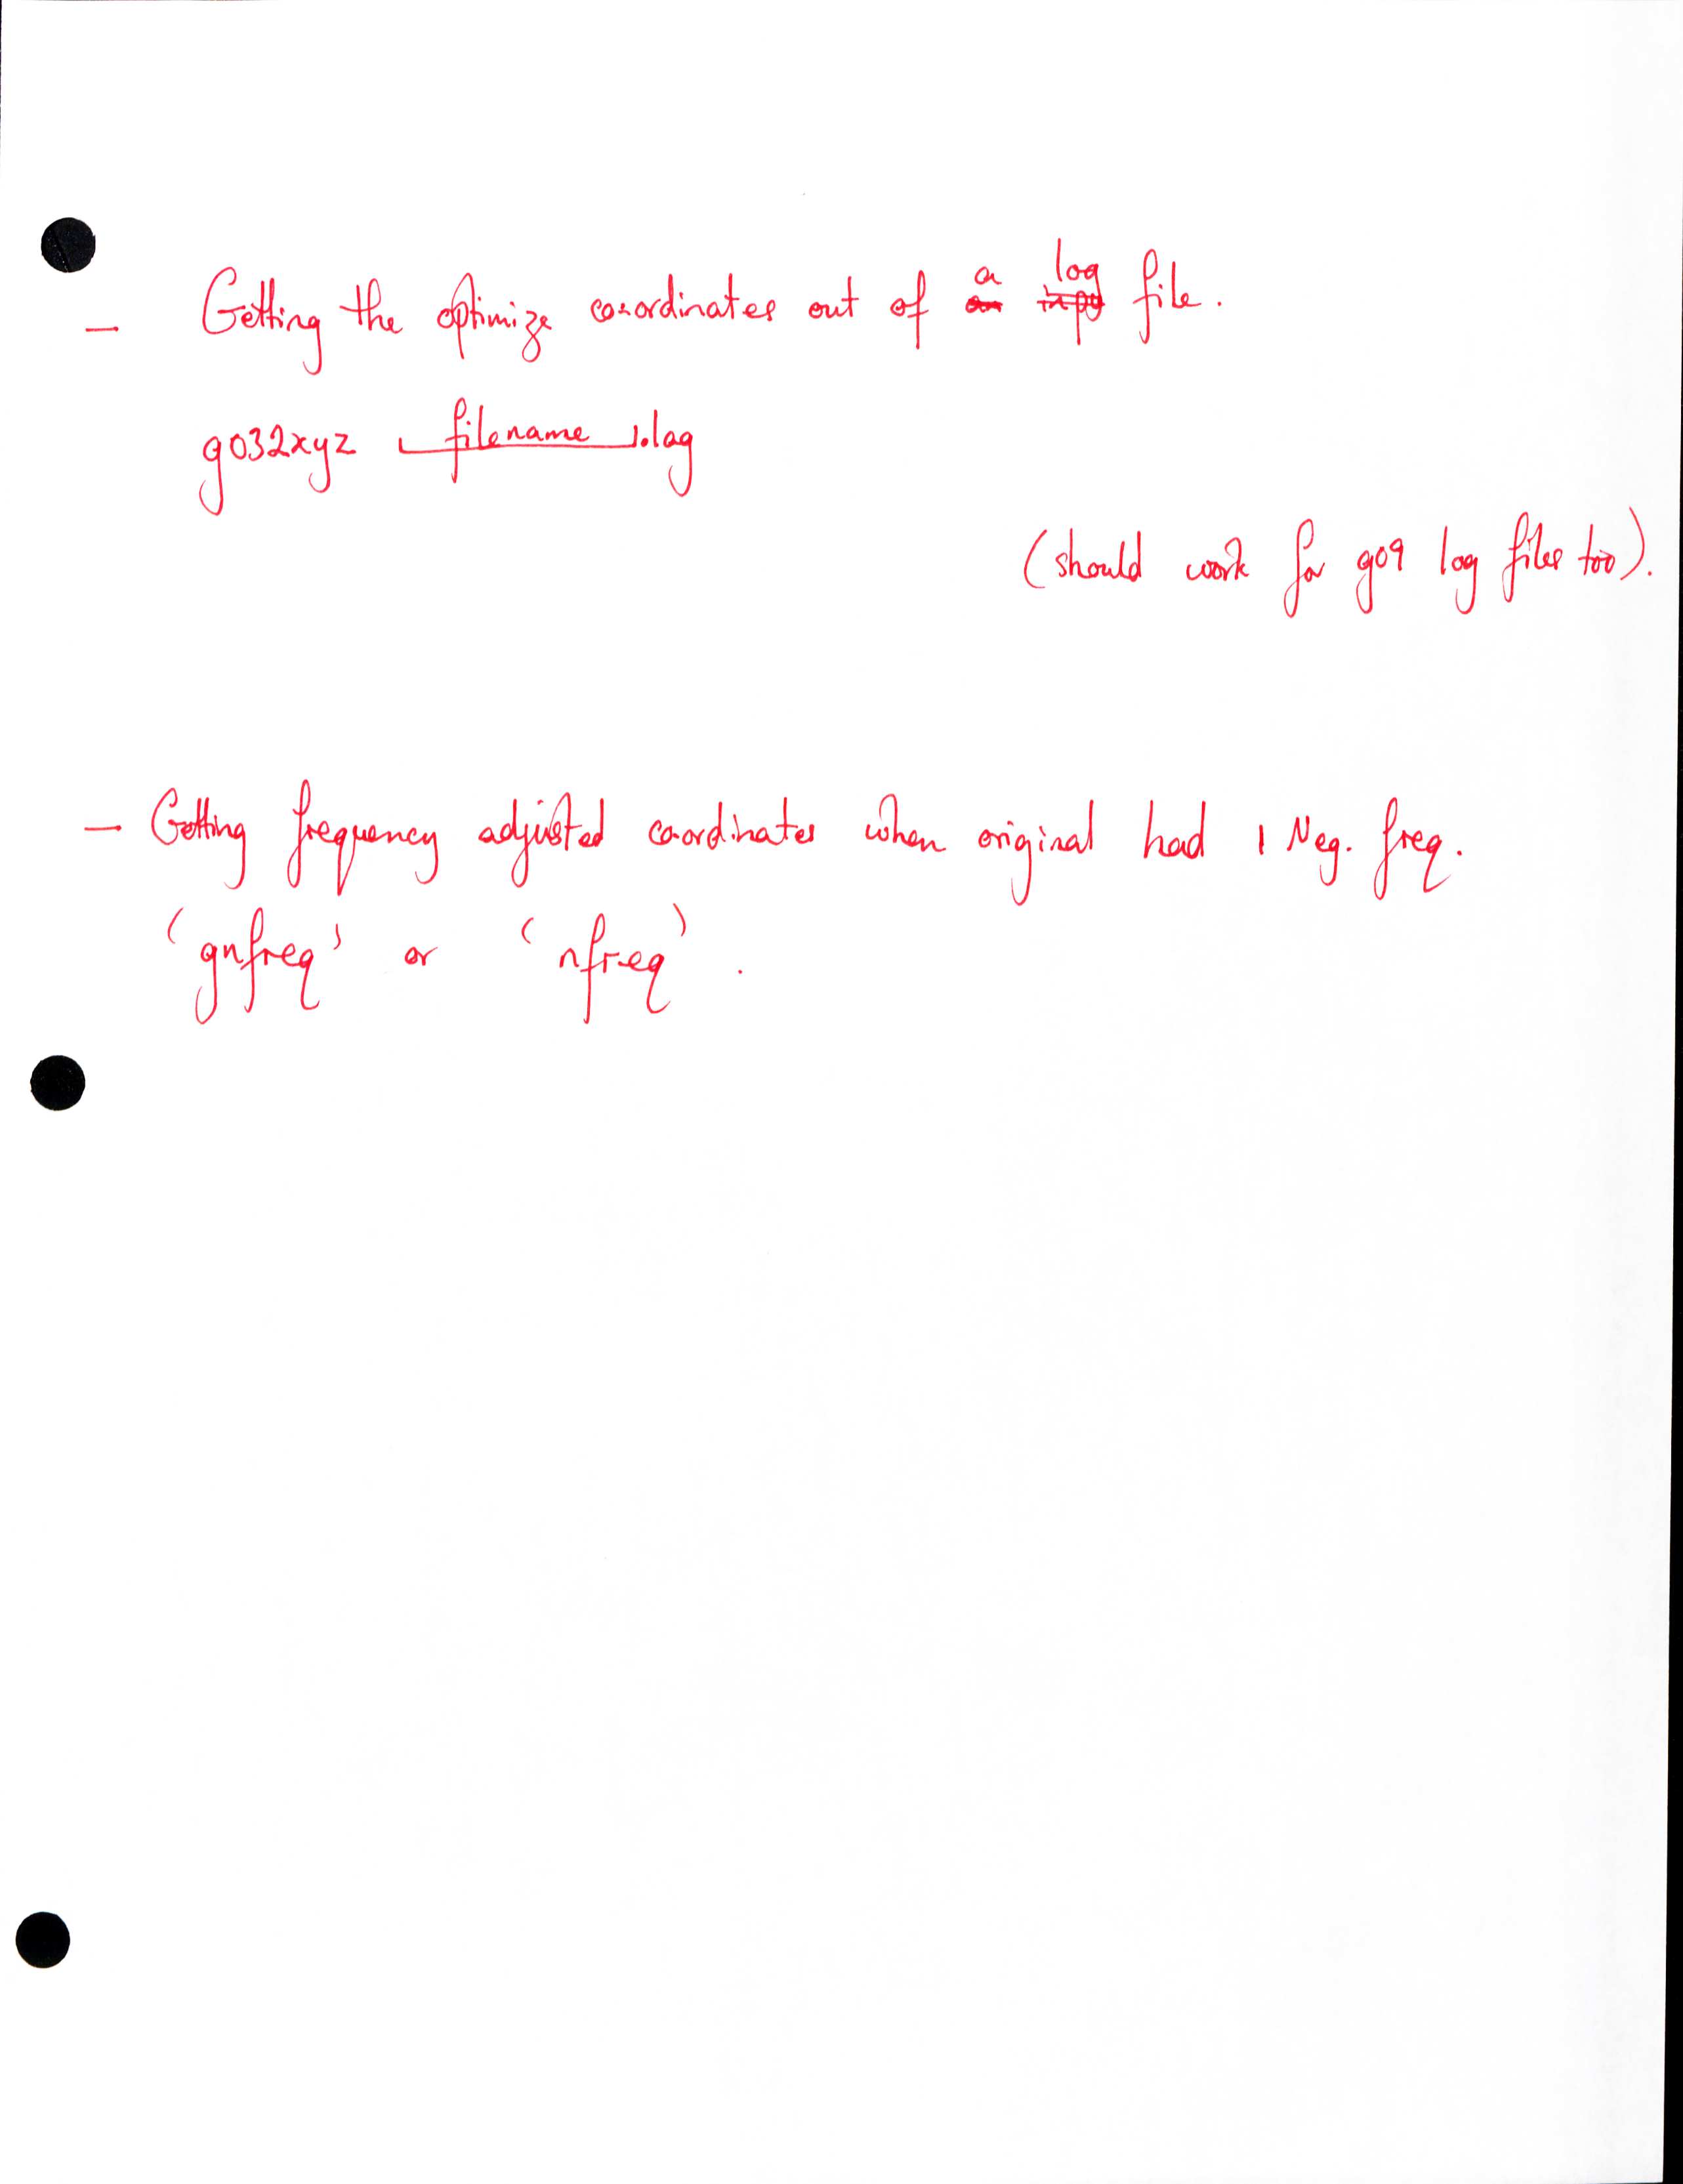 - Getting the optimize co-ordinates out of a log file.
g032xyz filename .log
(should work for g09 log files too).
- Getting frequency adjusted co-ordinates when original had 1 Neg. freq.
'gnfreq' or 'nfreq'.